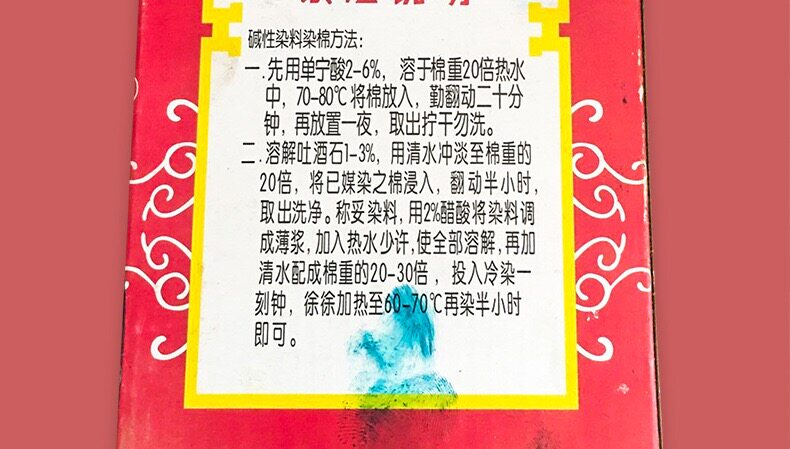 碱性染料染棉方法：
一.先用单宁酸2-6%，溶于棉重20倍热水
中，70-80℃将棉放入，勤翻动二十分
钟，再放置一夜，取出拧干勿洗。
二.溶解吐酒石1-3%，用清水冲淡至棉重的
20倍，将已媒染之棉浸入，翻动半小时，
取出洗净。称妥染料，用2%醋酸将染料调
成薄浆，加入热水少许，使全部溶解，再加
清水配成棉重的20-30倍，投入冷染一
刻钟，徐徐加热至60-70℃再染半小时
即可。